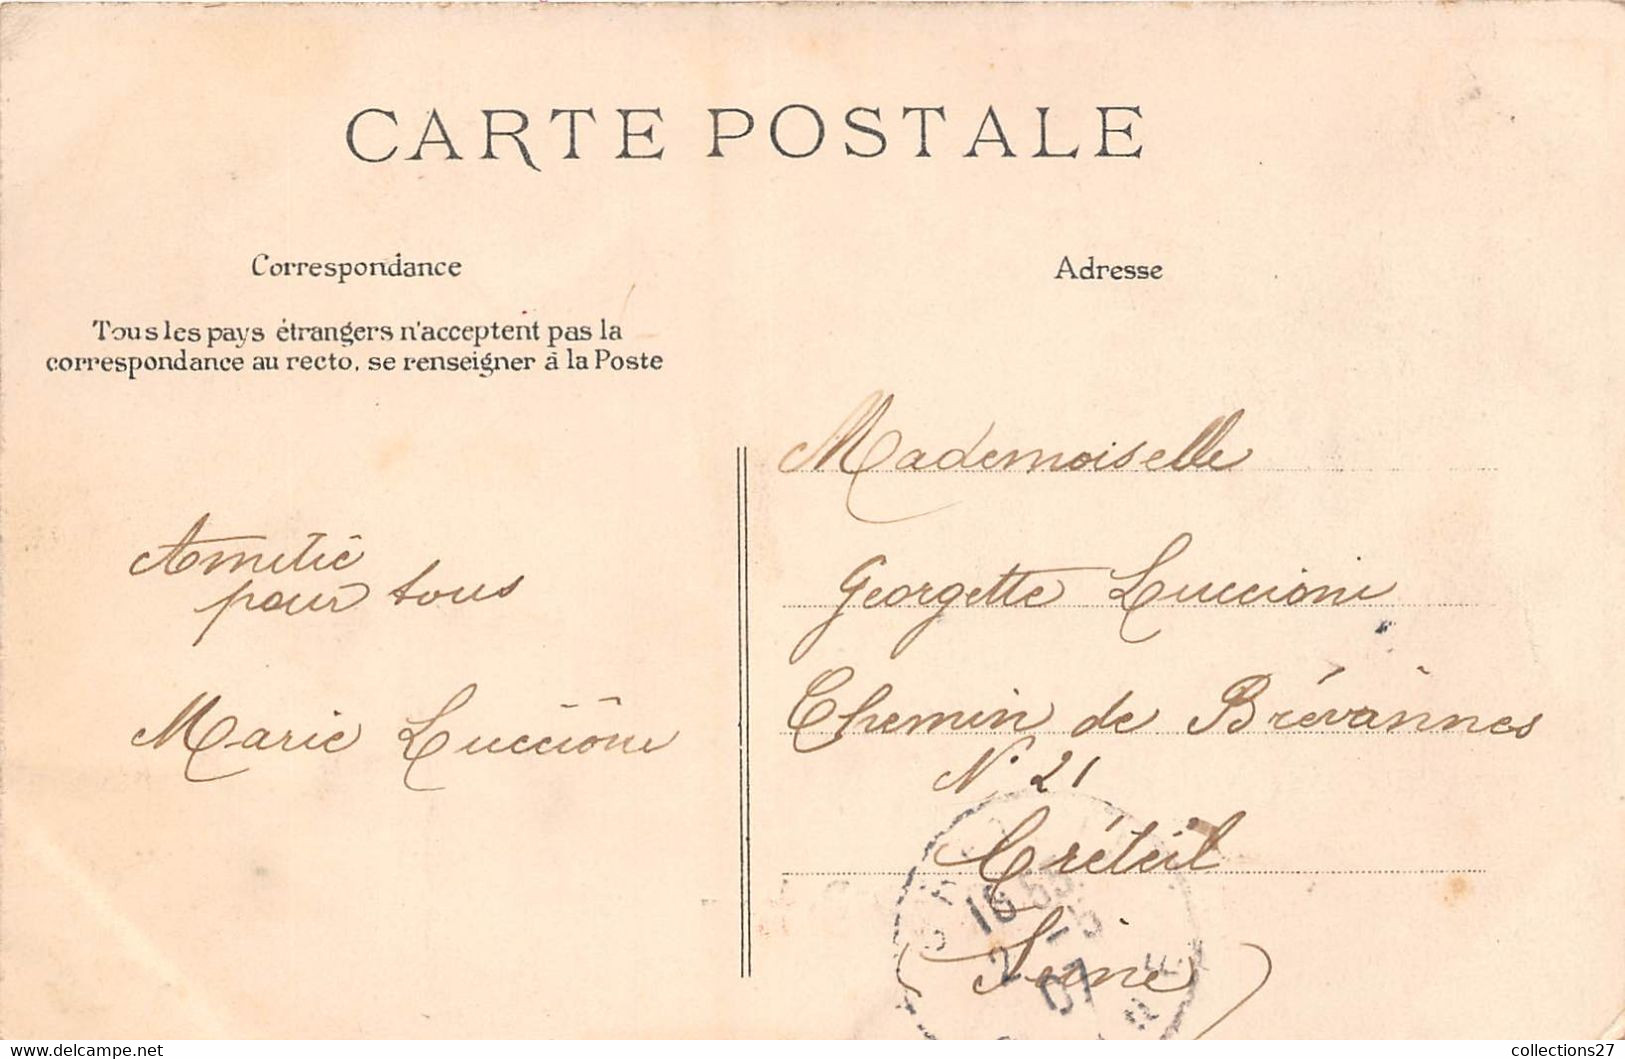 CARTE POSTALE
Correspondance
Tous les pays étrangers n'acceptent pas la
correspondance au recto, se renseigner à la Poste
Amitié
pour tous
Marie Luccioni
Adresse
Mademoiselle
Georgette Luccioni
Chemin de Brévannes
N° 21
Créteil
(Seine)
07
collections27